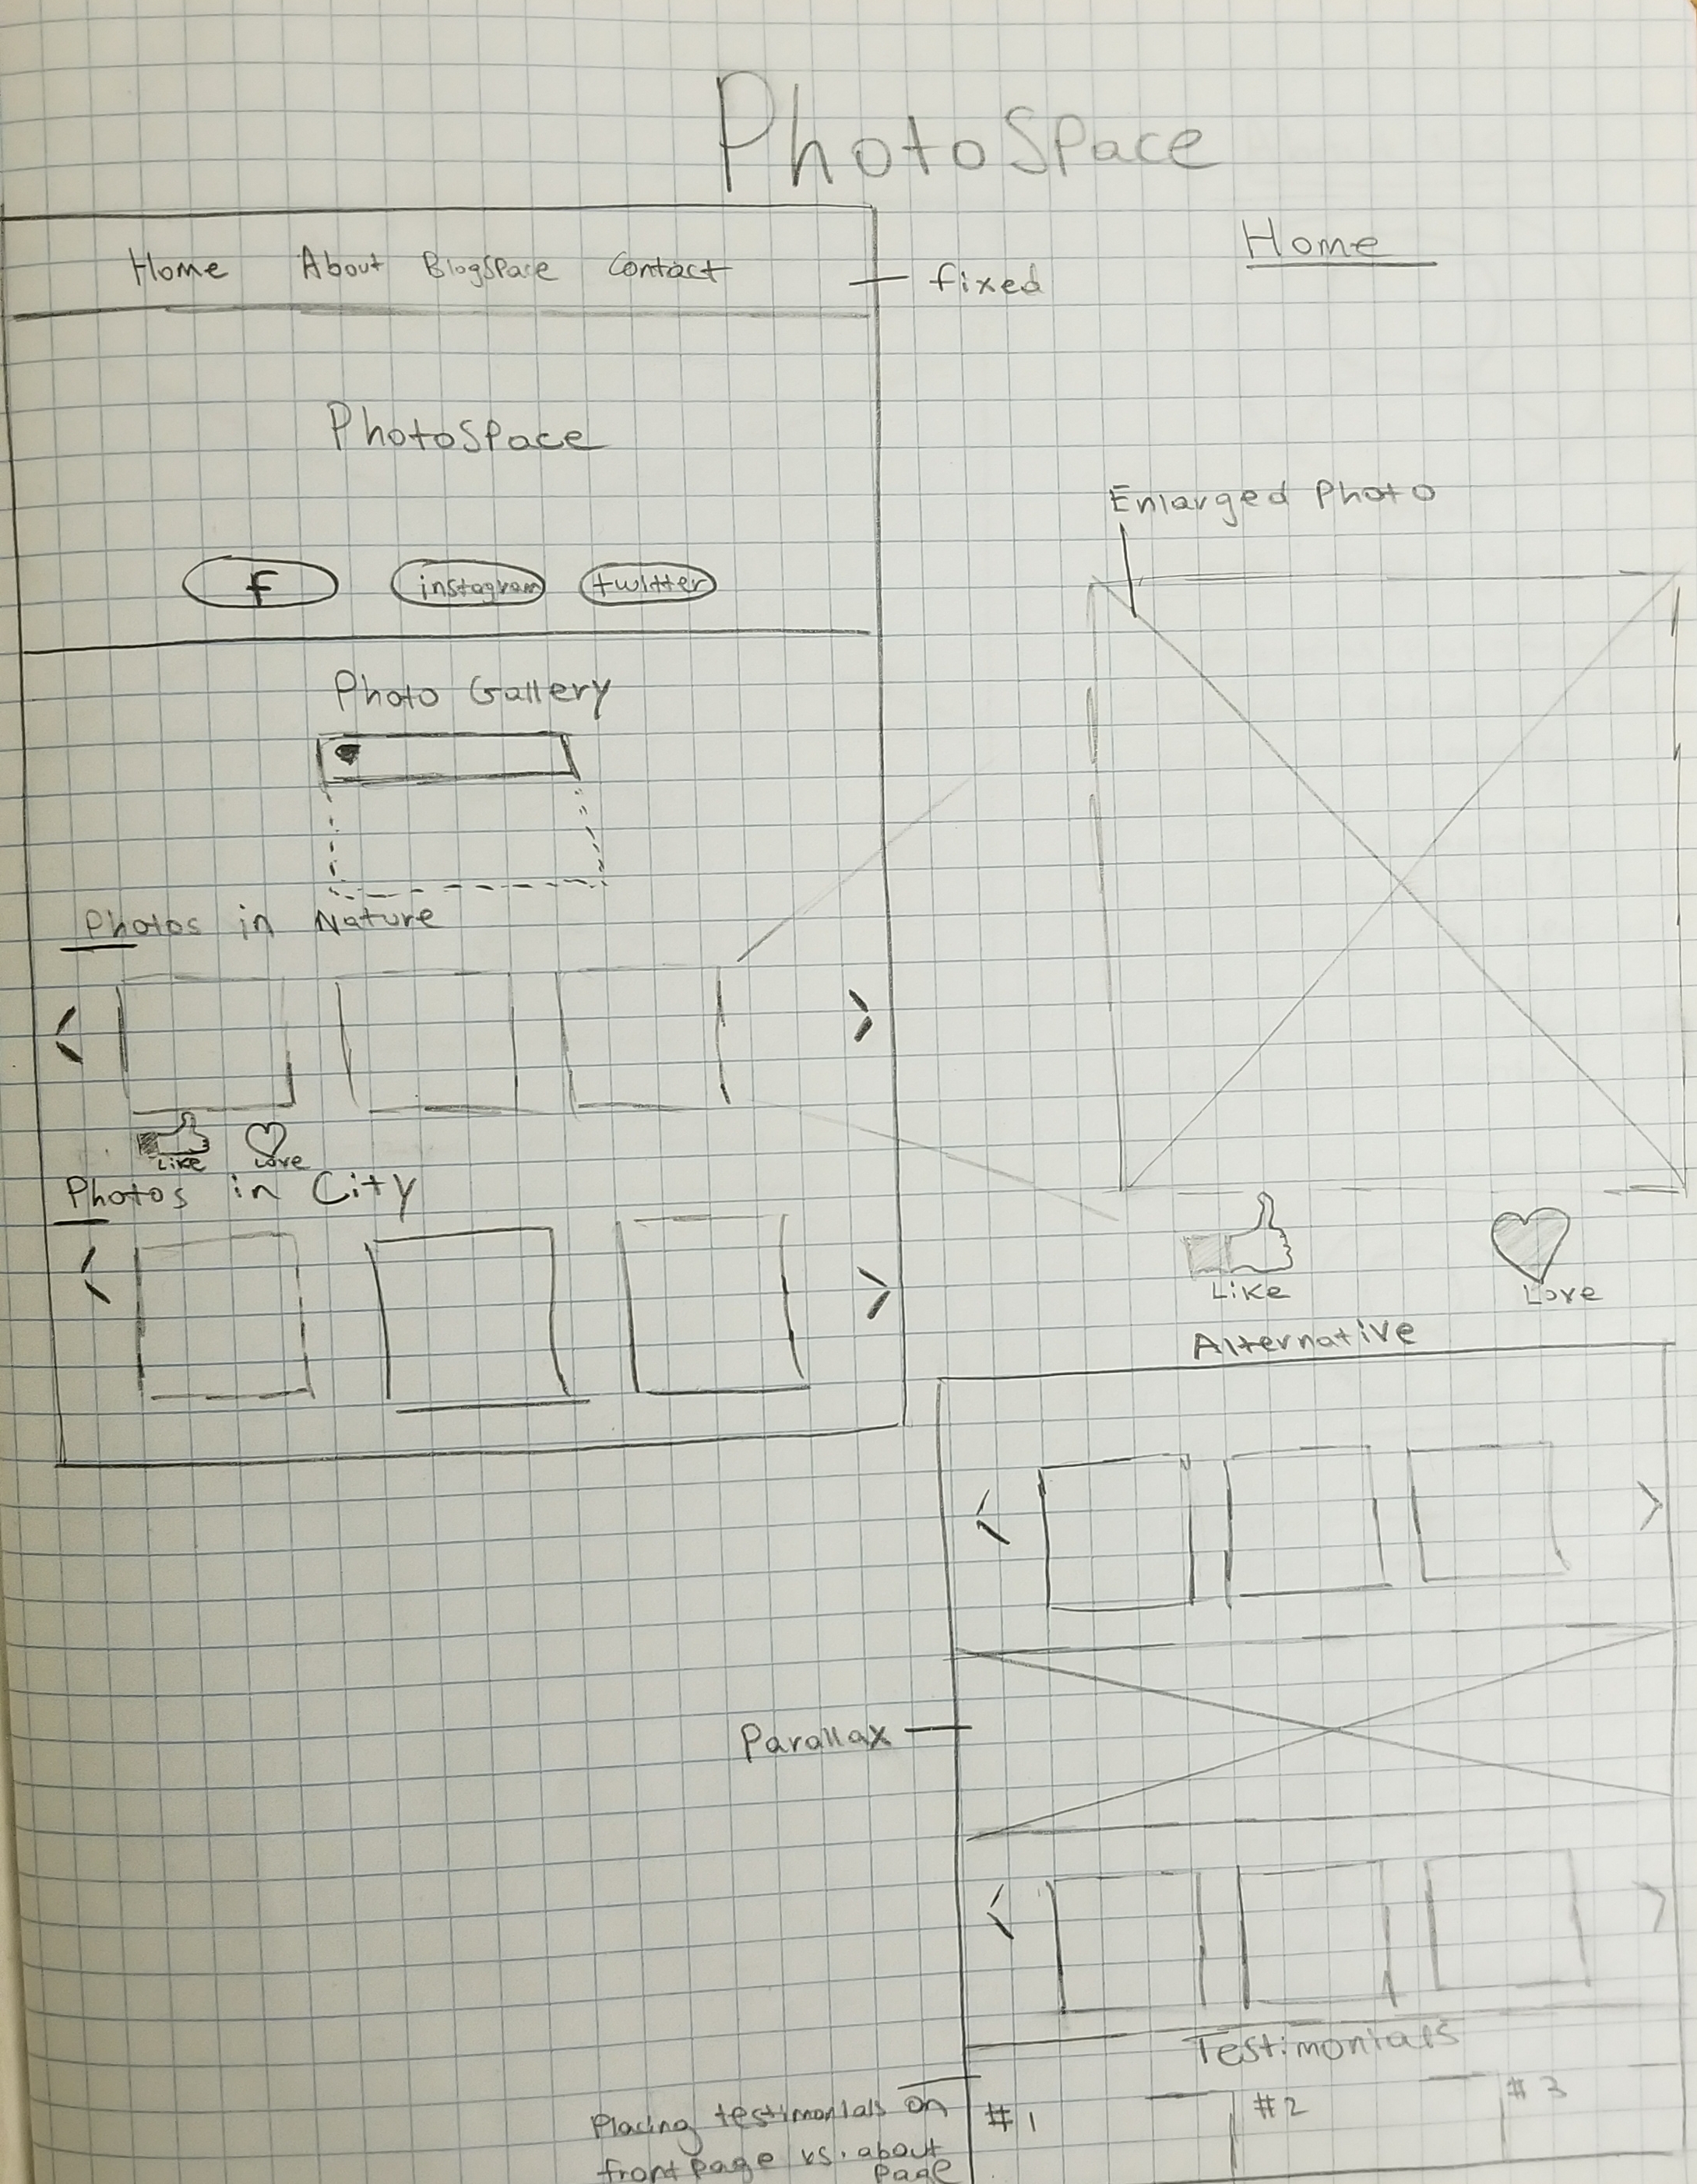 PhotoSpace
Home
Home About BlogSpace Contact
fixed
PhotoSpace
f instagram twitter
Photo Gallery
Photos in Nature
Like Love
Photos in City
Enlarged Photo
Like Love
Alternative
Parallax
Testimonials
#1 #2 #3
Placing testimonials on
front page vs. about
page